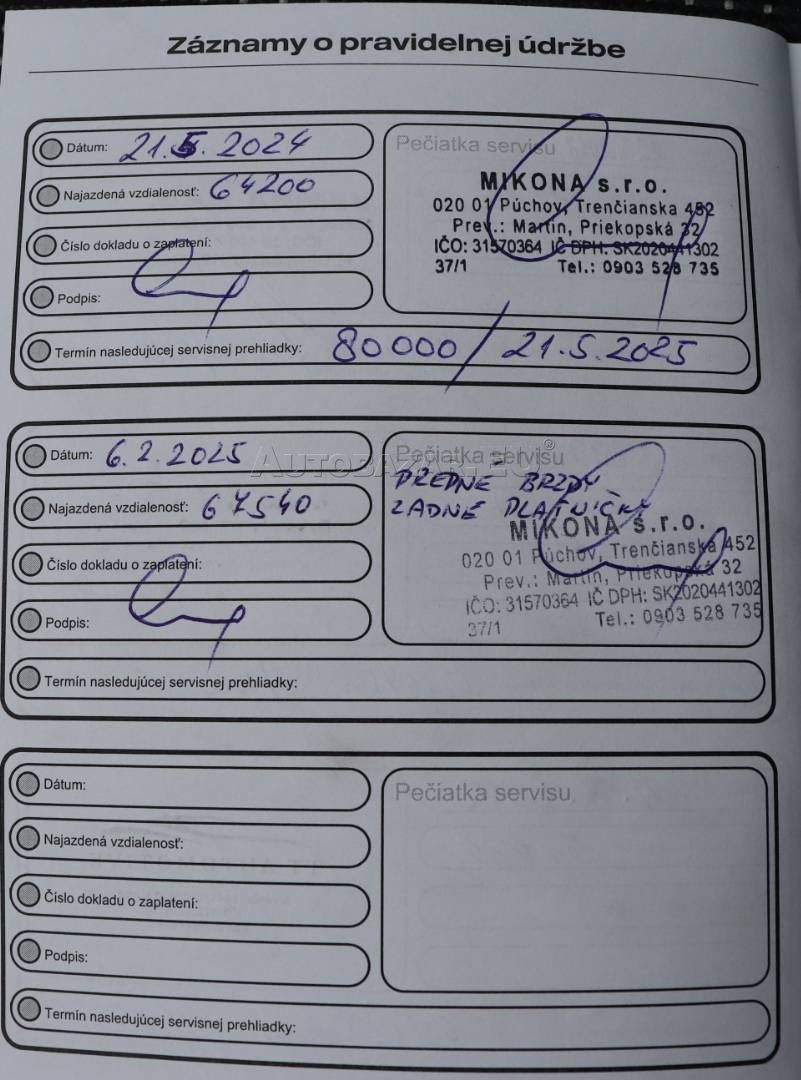 Záznamy o pravidelnej údržbe
Dátum: 21.5.2024
Najazdená vzdialenosť: 64200
Číslo dokladu o zaplatení:
Podpis:
Pečiatka servisu
MIKONA s.r.o.
020 01 Púchov, Trenčianska 452
Prev.: Martin, Priekopská 32
IČO: 31570364 IČ DPH: SK2020441302
37/1 Tel.: 0903 528 735
Termín nasledujúcej servisnej prehliadky: 80000 / 21.5.2025
Dátum: 6.2.2025
Najazdená vzdialenosť: 67540
Číslo dokladu o zaplatení:
Podpis:
AUTOBAZAR.EU®
Pečiatka servisu
PŘEDNÉ BRZDY
ZADNÉ PLATNIČKY
MIKONA s.r.o.
020 01 Púchov, Trenčianska 452
Prev.: Martin, Priekopská 32
IČO: 31570364 IČ DPH: SK2020441302
37/1 Tel.: 0903 528 735
Termín nasledujúcej servisnej prehliadky:
Dátum:
Najazdená vzdialenosť:
Číslo dokladu o zaplatení:
Podpis:
Pečiatka servisu
Termín nasledujúcej servisnej prehliadky: